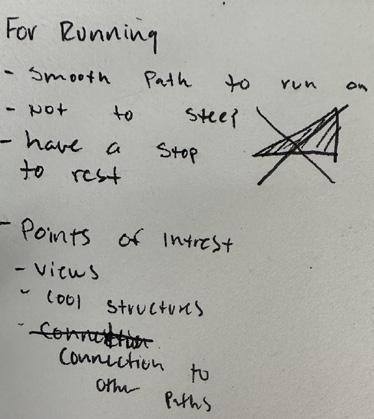 For Running
- Smooth Path to run on
- Not to steep
- have a stop
to rest
- Points of Intrest
- Views
- Cool structures
- Connection
Connection to
other Paths